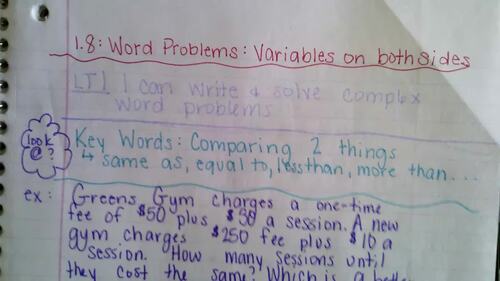 1.8: Word Problems: Variables on both sides
LT! I can write & solve complex
word problems
look
@ ?
Key Words: Comparing 2 things
↳ same as, equal to, less than, more than...
ex: Greens Gym charges a one-time
fee of $50 plus $30 a session. A new
gym charges $250 fee plus $10 a
session. How many sessions until
they cost the same? Which is a better